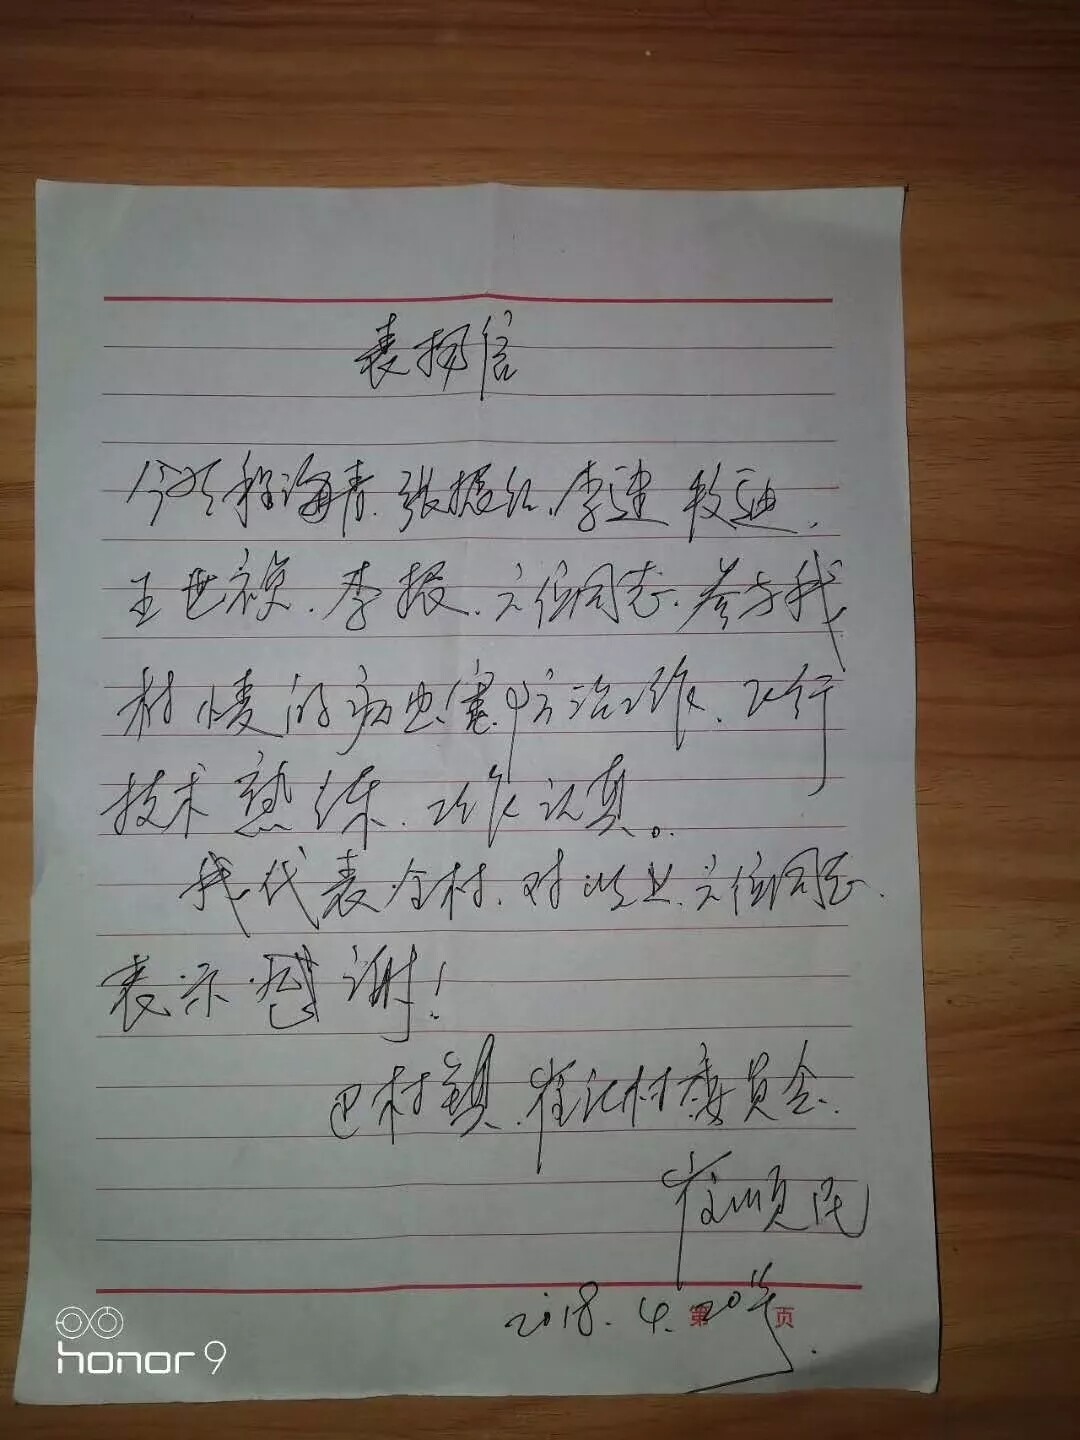 表扬信
今有程海青.张振红.李建 牧迪.
王世禎.李振.六位同志.参于我
村 的病虫害.防治工作.飞行
技术熟练.工作认真。
我代表全村.对以上.六位同志.
表示感谢!
巴村镇.崔 村委员会.
崔顺民
2018.4.20
第 页
honor 9